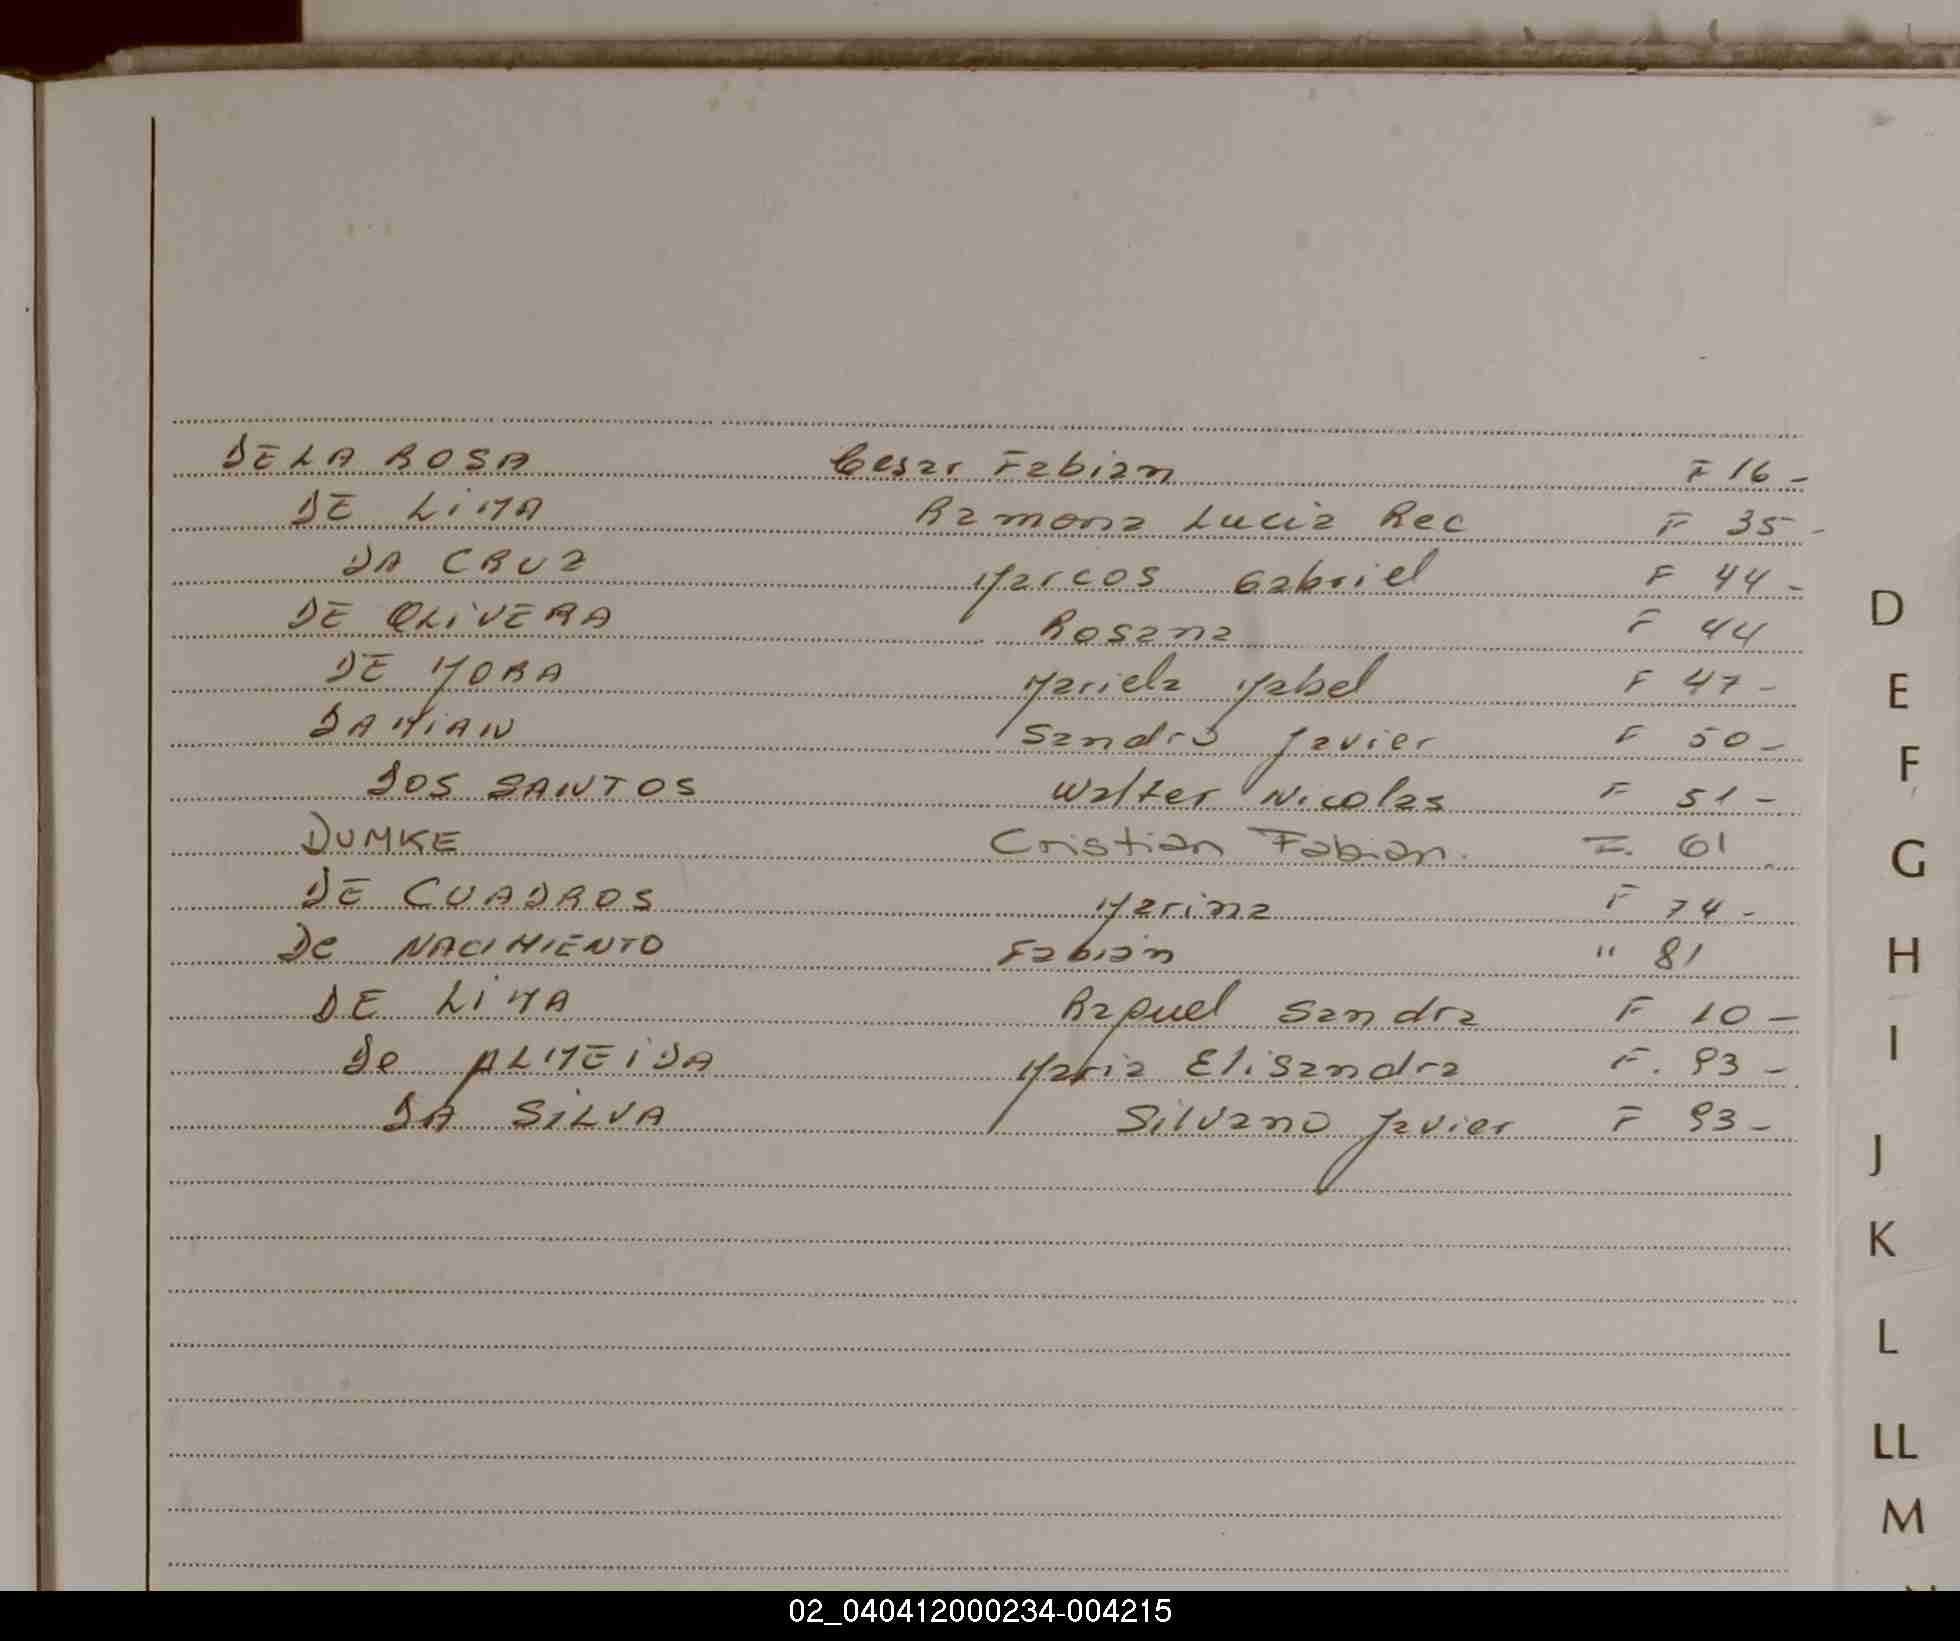 DE LA ROSA Cesar Fabian F 16 -
DE LiMA Ramona Lucia Rec F 35 -
DA CRUZ Marcos Gabriel F 44 -
DE OLiVERA Rosana F 44
DE MORA Mariela Mabel F 47 -
DAMiAN Sandro Javier F 50 -
DOS SANTOS Walter Nicolas F 51 -
DUMKE Cristian Fabian. F. 61
DE CUADROS Marina F 74 -
De NACIMIENTO Fabián " 81
DE LiMA Raquel Sandra F 10 -
De ALMEiDA Maria Elisandra F. 93 -
DA SiLVA Silvano Javier F 93 -
D
E
F
G
H
I
J
K
L
LL
M
02_040412000234-004215